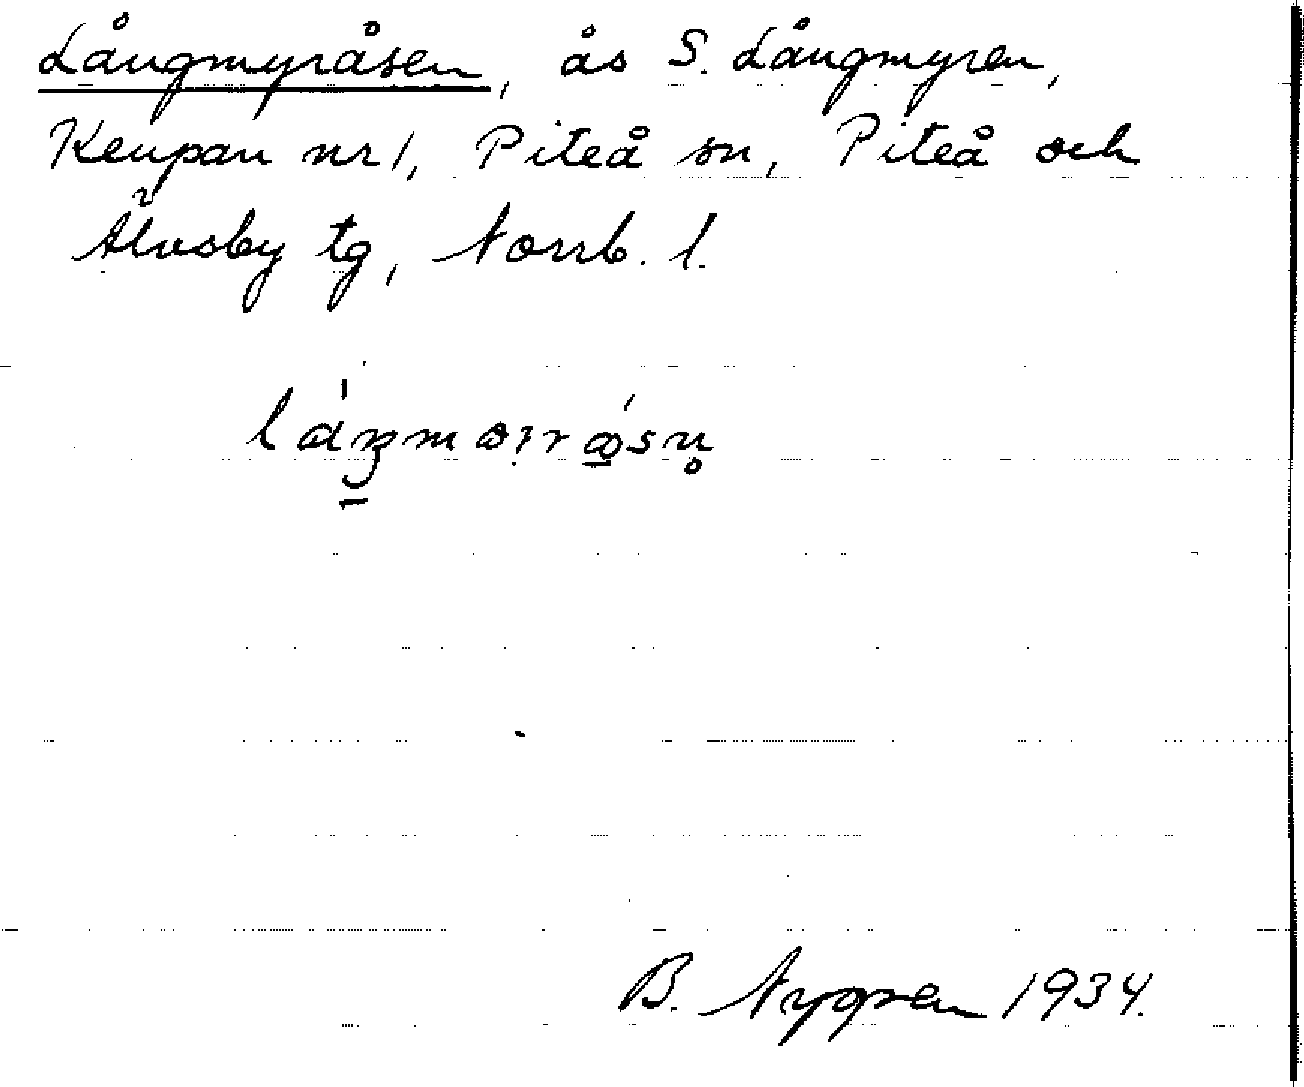 Långmyråsen, ås S. Långmyren,
Kenpan nr 1, Piteå sn, Piteå och
Älvsby tg, Norrb. l.
B. Nygren 1934.